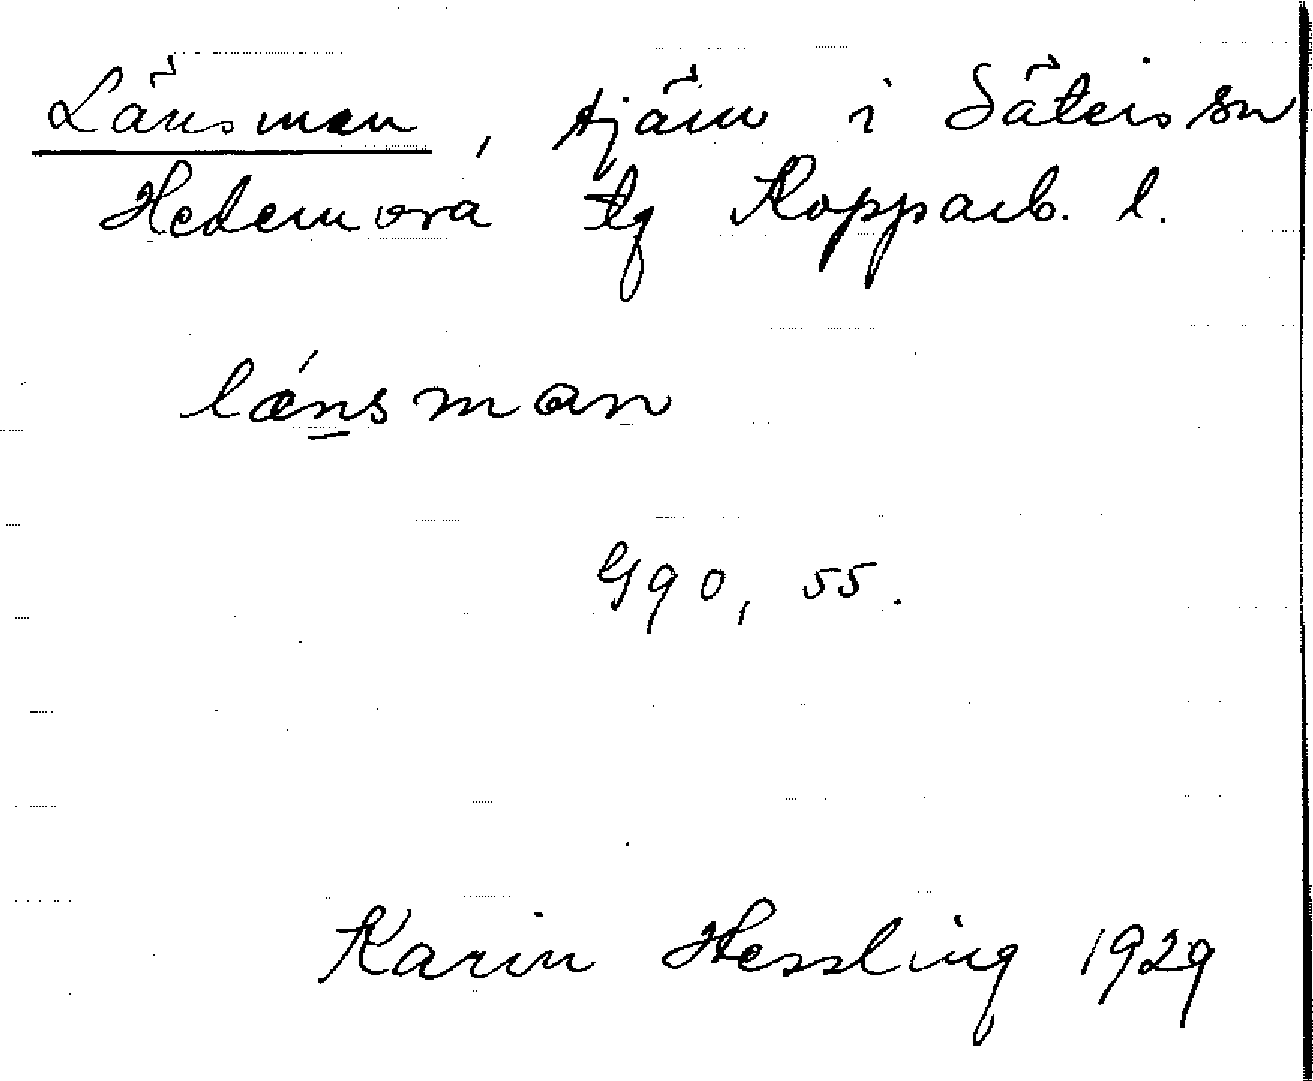 Länsman, tjärn i Säters sn
Hedemora tg Kopparb. l.
lǽnsman
Gg 0, 55.
Karin Hessling 1929